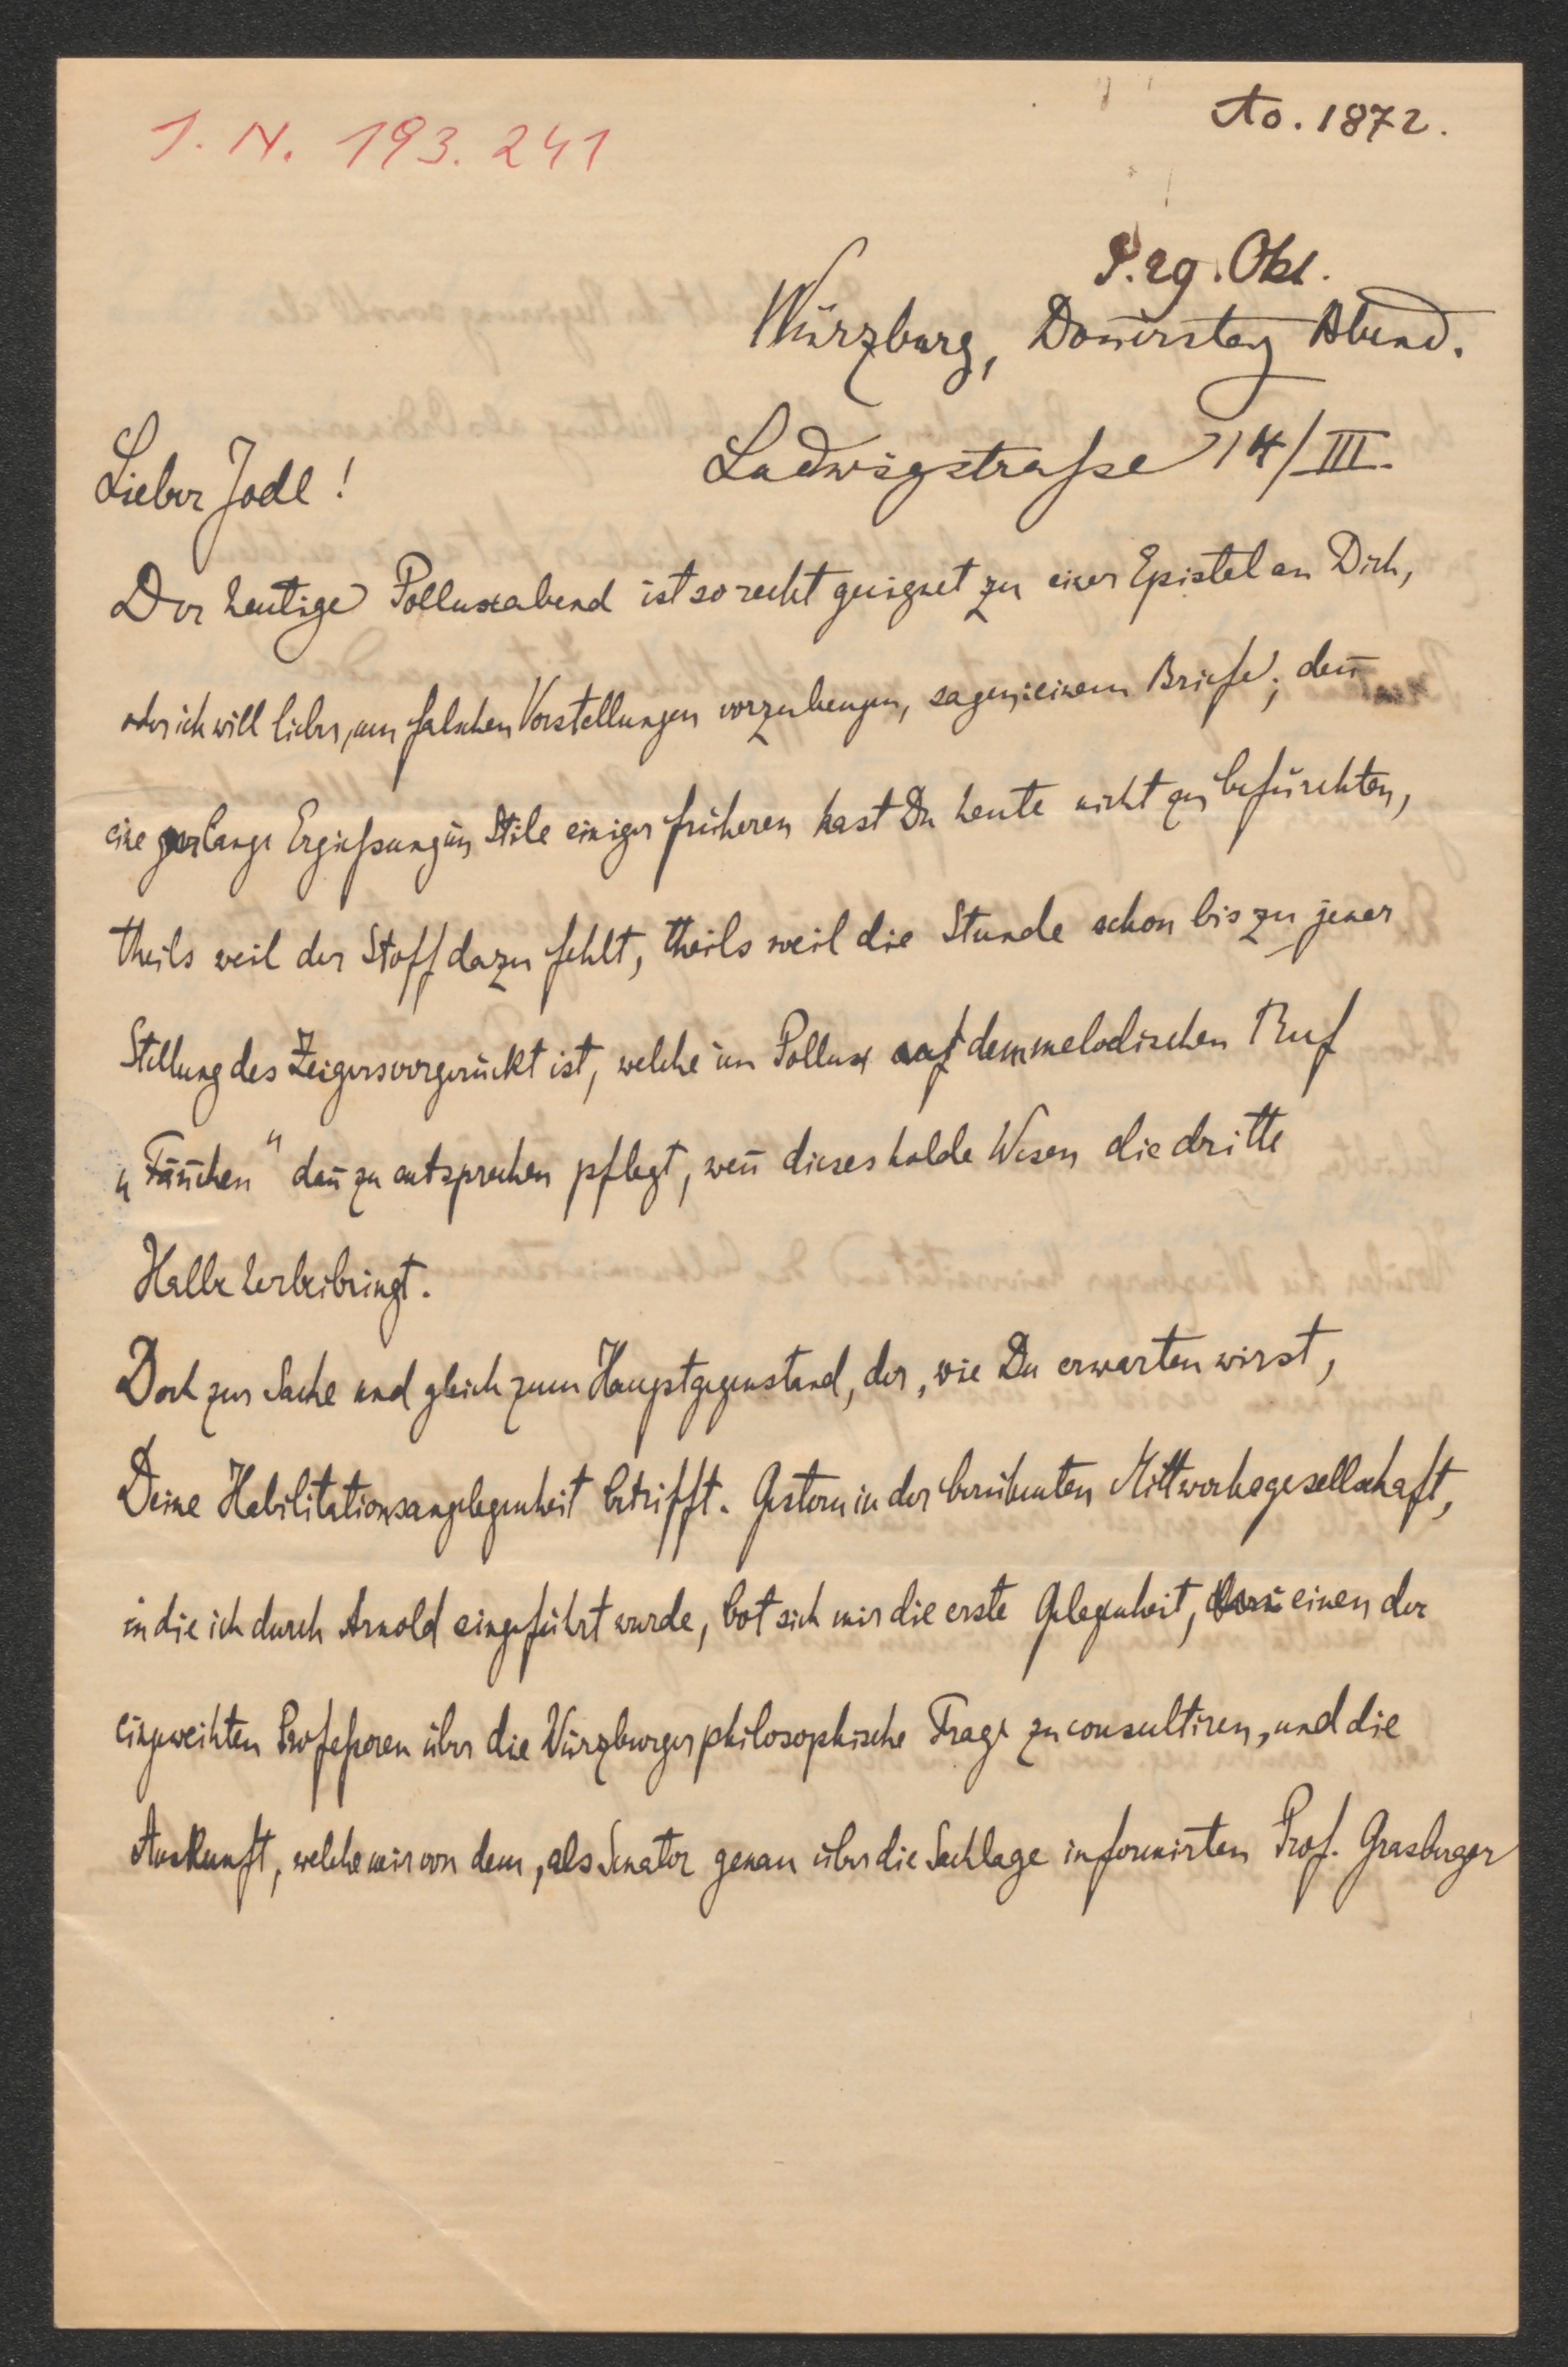 I. N. 193.241
Ao. 1872.
P. 29. Okt.
Würzburg, Doñerstag Abend.
Ludwigstraße 14/III.
Lieber Jodl!
Der heutige Polluxabend ist so recht geeignet zu einer Epistel an Dich,
oder ich will lieber, um falschen Vorstellungen vorzubeugen, sagen: einem Briefe; deñ
eine lange Ergießung im Stile einiger früheren hast Du heute nicht zu befürchten,
theils weil der Stoff dazu fehlt, theils weil die Stunde schon bis zu jener
Stellung des Zeigers vorgerückt ist, welche im Pollux auf dem melodischen Ruf
„Fañchen“ dañ zu entsprechen pflegt, weñ dieses holde Wesen die dritte
Halbe herbeibringt.
Doch zur Sache und gleich zum Hauptgegenstand, der, wie Du erwarten wirst,
Deine Habilitationsangelegenheit betrifft. Gestern in der berühmten Mittwochsgesellschaft,
in die ich durch Arnold eingeführt wurde, bot sich mir die erste Gelegenheit, einen der
eingeweihten Profeßoren über die Würzburger philosophische Frage zu consultiren, und die
Auskunft, welche mir von dem, als Senator genau über die Sachlage informirten Prof. Grasberger